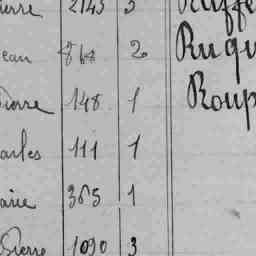 2143 3
ean 868 2 Ruqu
Pierre 148 1 Roup
arles 111 1
arie 365 1
Pierre 1090 3